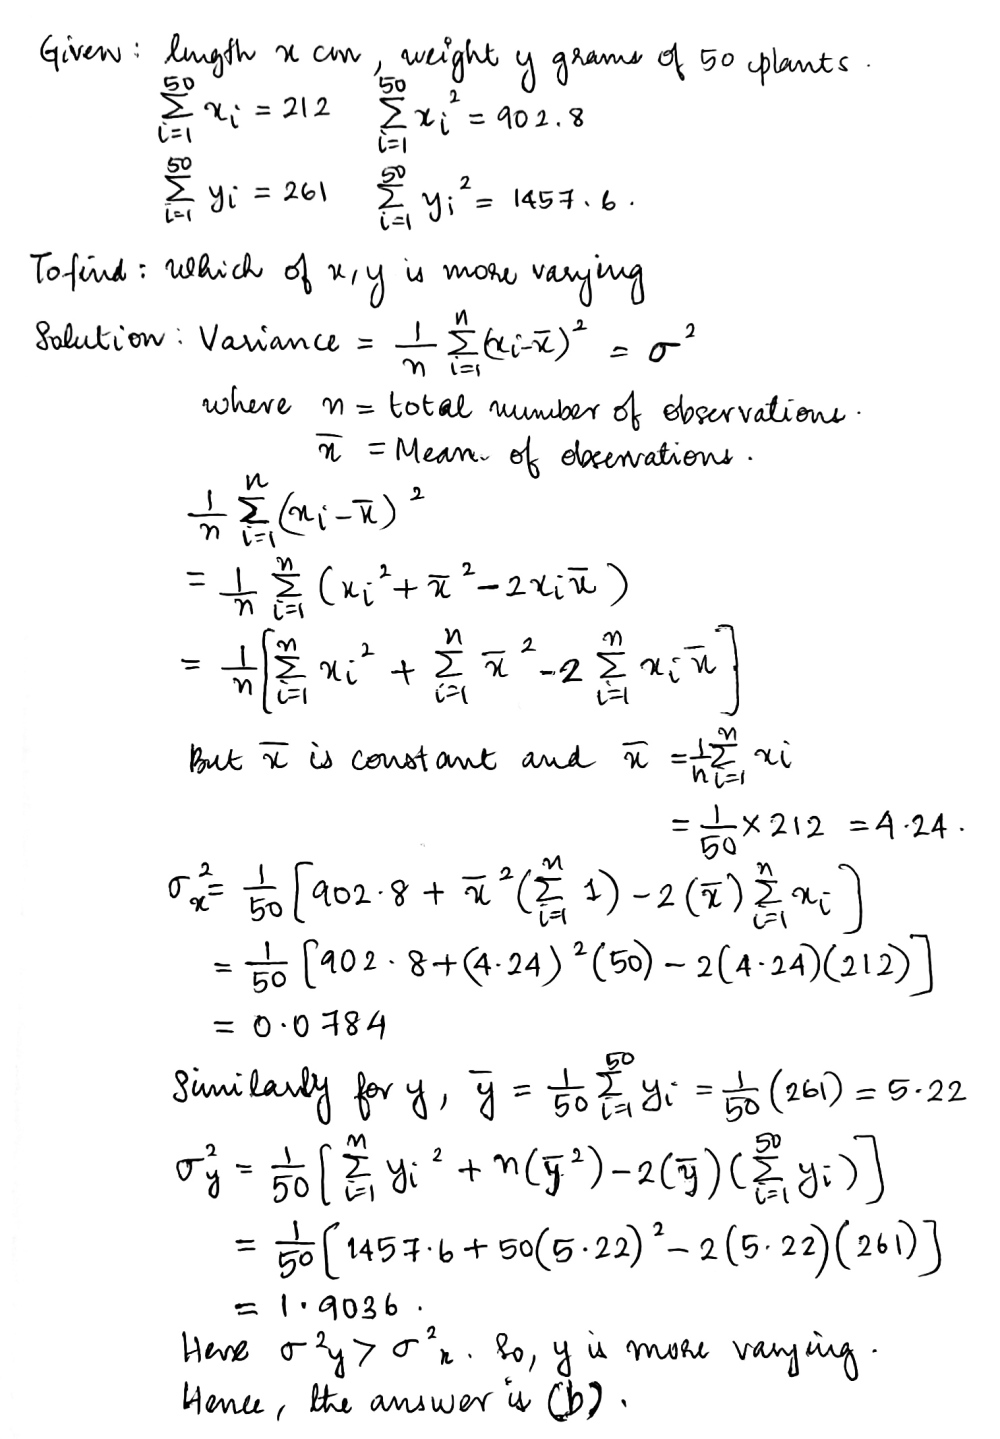 Given : length x cm , weight y grams of 50 plants .
50∑i=1 xi = 212 50∑i=1 xi² = 902.8
50∑i=1 yi = 261 50∑i=1 yi² = 1457.6 .
To find : which of x, y is more varying
Solution : Variance = 1/n n∑i=1 (xi-x̄)² = σ²
where n = total number of observations .
x̄ = Mean of observations .
1/n n∑i=1 (xi-x̄)²
= 1/n n∑i=1 (xi² + x̄² - 2xix̄)
= 1/n [n∑i=1 xi² + n∑i=1 x̄² - 2 n∑i=1 xi x̄]
But x̄ is constant and x̄ = 1/n n∑i=1 xi
= 1/50 × 212 = 4.24 .
σx² = 1/50 [902.8 + x̄² (n∑i=1 1) - 2(x̄) n∑i=1 xi]
= 1/50 [902.8 + (4.24)²(50) - 2(4.24)(212)]
= 0.0784
Similarly for y, ȳ = 1/50 50∑i=1 yi = 1/50 (261) = 5.22
σy² = 1/50 [n∑i=1 yi² + n(ȳ²) - 2(ȳ)(50∑i=1 yi)]
= 1/50 [1457.6 + 50(5.22)² - 2(5.22)(261)]
= 1.9036 .
Here σ²y > σ²x . So, y is more varying .
Hence, the answer is (b) .